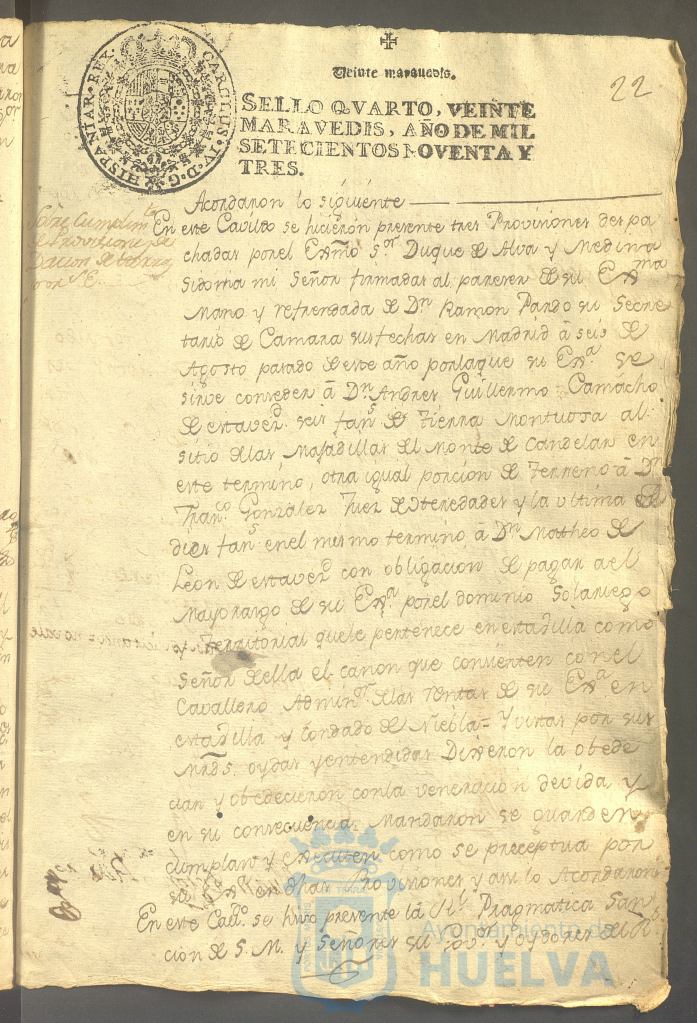 22
Veinte maravedis.
SELLO QVARTO, VEINTE
MARAVEDIS, AÑO DE MIL
SETECIENTOS NOVENTA Y
TRES.
CAROLUS IV D. G. HISPANIAR. REX
Acordaron lo siguiente
Sobre Cumplimto
de Provisiones de
Dacion de tierras
por S.E.
En este Cavildo se hicieron presente tres Proviniones despa
chadas por el Exmo Sor Duque de Alva y Medina
Sidonia mi Señor firmadas al parecer de su Exma
Mano y refrendada de Dn Ramon Pardo su Secre
tario de Camara sus fechas en Madrid â seis de
Agosto pasado de este año por las que su Exa se
sirve conceder â Dn Andres Guillermo Camacho
de esta vezd seis fans de Tierra Montuosa al
sitio de las Majadillas del Monte de Candelar en
este termino, otra igual porcion de Terreno â Dn
Franco Gonzalez Juez de Heredades y la ultima de
diez fans en el mismo termino â Dn Mattheo de
Leon de esta vezd con obligacion de pagar a el
Mayorazgo de su Exa por el dominio Solariego
y Territorial que le pertenece en esta villa como
Señor de ella el canon que convienten con el
Cavallero Adminr de las rentas de su Exa en
esta villa y Condado de Niebla = Y vistas por sus
Mrds oydas y entendidas Dixeron la obede
cian y obedecieron con la veneracion devida y
en su consecuencia Mandaron se guarden
cumplan y executen como se preceptua por
su Exa en dhas Provisiones y asi lo Acordaron
En este Cavdo se hizo presente la Rl Pragmatica San
cion de S. M. y Señores su Govor y oydores del Rl
Ayuntamiento de
HUELVA